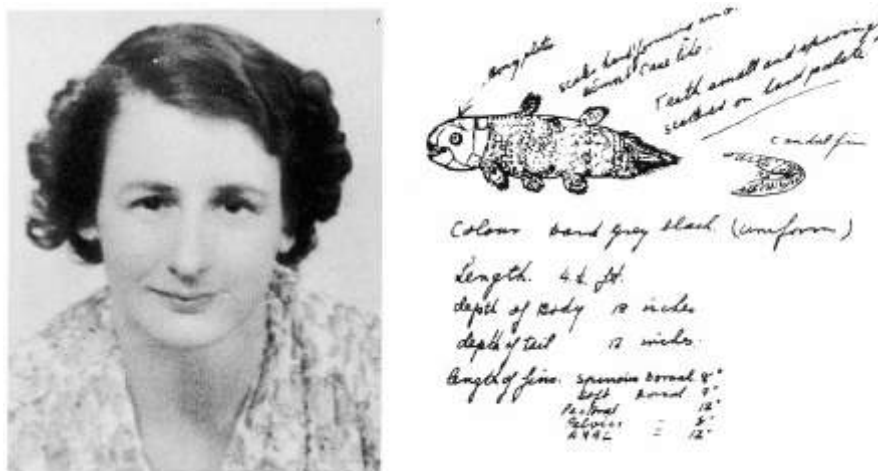 bony plate
scales
almost case like.
Teeth small and
scattered on hard palate
caudal fin
Colour hard grey black. (uniform)
Length. 4½ ft.
depth of Body 18 inches
depth of tail 12 inches.
length of fins. Spinous Dorsal 8"
Soft Dorsal
Pectoral 12"
Pelvics 8"
ANAL 12"